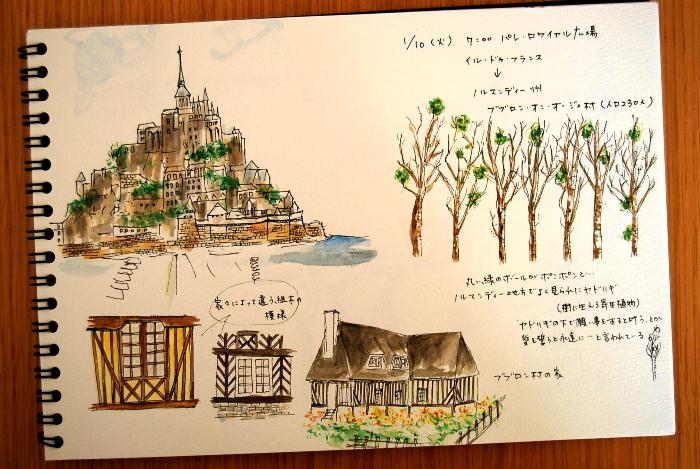 1/10(火) 7:00 パレ・ロワイヤル広場
イル・ドゥ・フランス
↓
ノルマンディー州
ブブロン・オン・オージュ村(人口230人)
丸い緑のボールがポンポンと…
ノルマンディー地方でよく見られたヤドリギ
(樹に生える寄生植物)
ヤドリギの下で願い事をすると叶う、とか
愛を誓うと永遠に…と言われている
家々によって違う、組木の
模様
ブブロン村の家